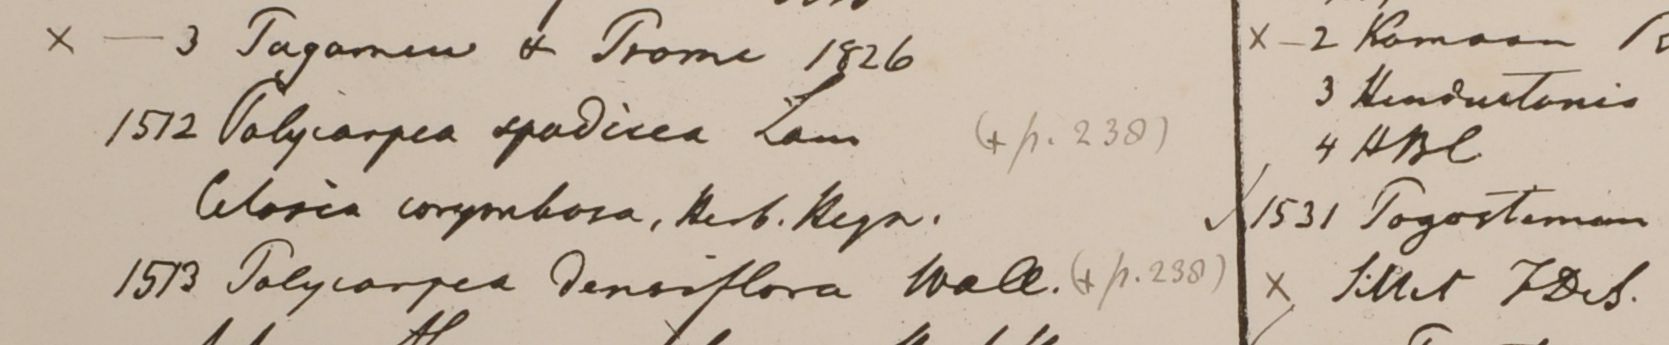 x — 3 Pagamew & Prome 1826
1512 Polycarpea spadicea Lam (+ p. 238)
Celosia corymbosa, Herb. Heyn.
1513 Polycarpea densiflora Wall. (+ p. 238)
x – 2 Kamaon
3 Hindustania
4 HBC
✓ 1531 Pogostemon
x Sillet FDeS.